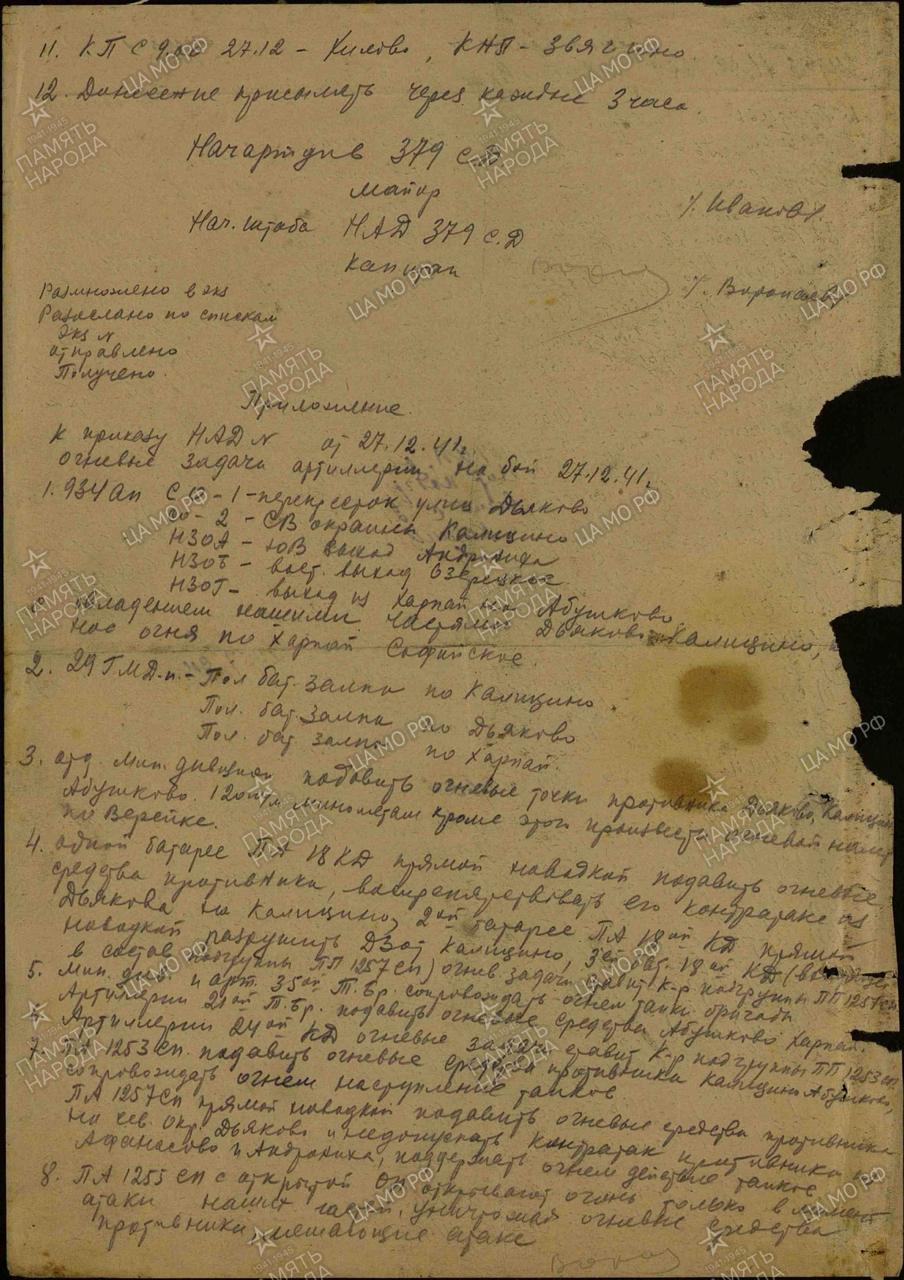 11. КП с 9.00 27.12 - Хилово, КНП - Звягино
12. Донесение присылать через каждые 3 часа
Начартдив 379 с.д.
майор
/. Иванов /.
Нач. штаба НАД 379 с.д
капитан
/. Воропаев
Размножено в экз
Разослано по спискам
Экз №
отправлено
Получено.
Приложение.
к приказу НАД № от 27.12.41г.
огневые задачи артиллерии на бой 27.12.41г.
1. 934 ап СО - 1 - перекресток улиц Дьяково
СО - 2 - СВ окраины Калицино
НЗОА - ЮВ выход Андрониха
НЗОБ - вост. выход Озерецкое
НЗОГ - выход из Харпай на Абушково
С овладением нашими частями Дьяково и Калицино,
нос огня по Харпай Софийское.
2. 29 ГМД.п. - Пол. бат. залпа по Калицино.
Пол. бат. залпа по Дьяково
Пол. бат. залпа по Харпай.
3. отд. мин. дивизион подавить огневые точки противника Дьяково, Калицино
Абушково. 120 м/м минометам кроме этого произвести огневой налет
по Верейке.
4. одной батарее ПА 18 КД прямой наводкой подавить огневые
средства противника, воспрепятствовать его контратаке из
Дьякова на Калицино, 2ой батарее ПА 18ой КД прямой
наводкой разрушить ДЗОТ Калицино, 3ей бат. 18ой КД
в состав подгруппы ПП 1257 сп) огнев. задачи ставит к-р подгруппы ПП 1257 сп
5. Мин. див. и арт. 35ой Т.бр. сопровождать огнем танки бригады
Артиллерии 21ой Т.бр. подавить огневые средства Абушково Харпай.
Артиллерии 24ой КД огневые задачи ставит к-р подгруппы ПП 1253 сп
7. ПА 1253 сп. подавить огневые средства противника Калицино Абушково,
сопровождать огнем наступление танков
ПА 1257 сп прямой наводкой подавить огневые средства противника
на сев. окр. Дьяково и недопускать контратак противника из
Афанасово и Андрониха, поддержать огнем действие танков
8. ПА 1255 сп с открытой ОП открывают огонь только в момент
атаки наших частей, уничтожая огневые средства
противника, мешающие атаке